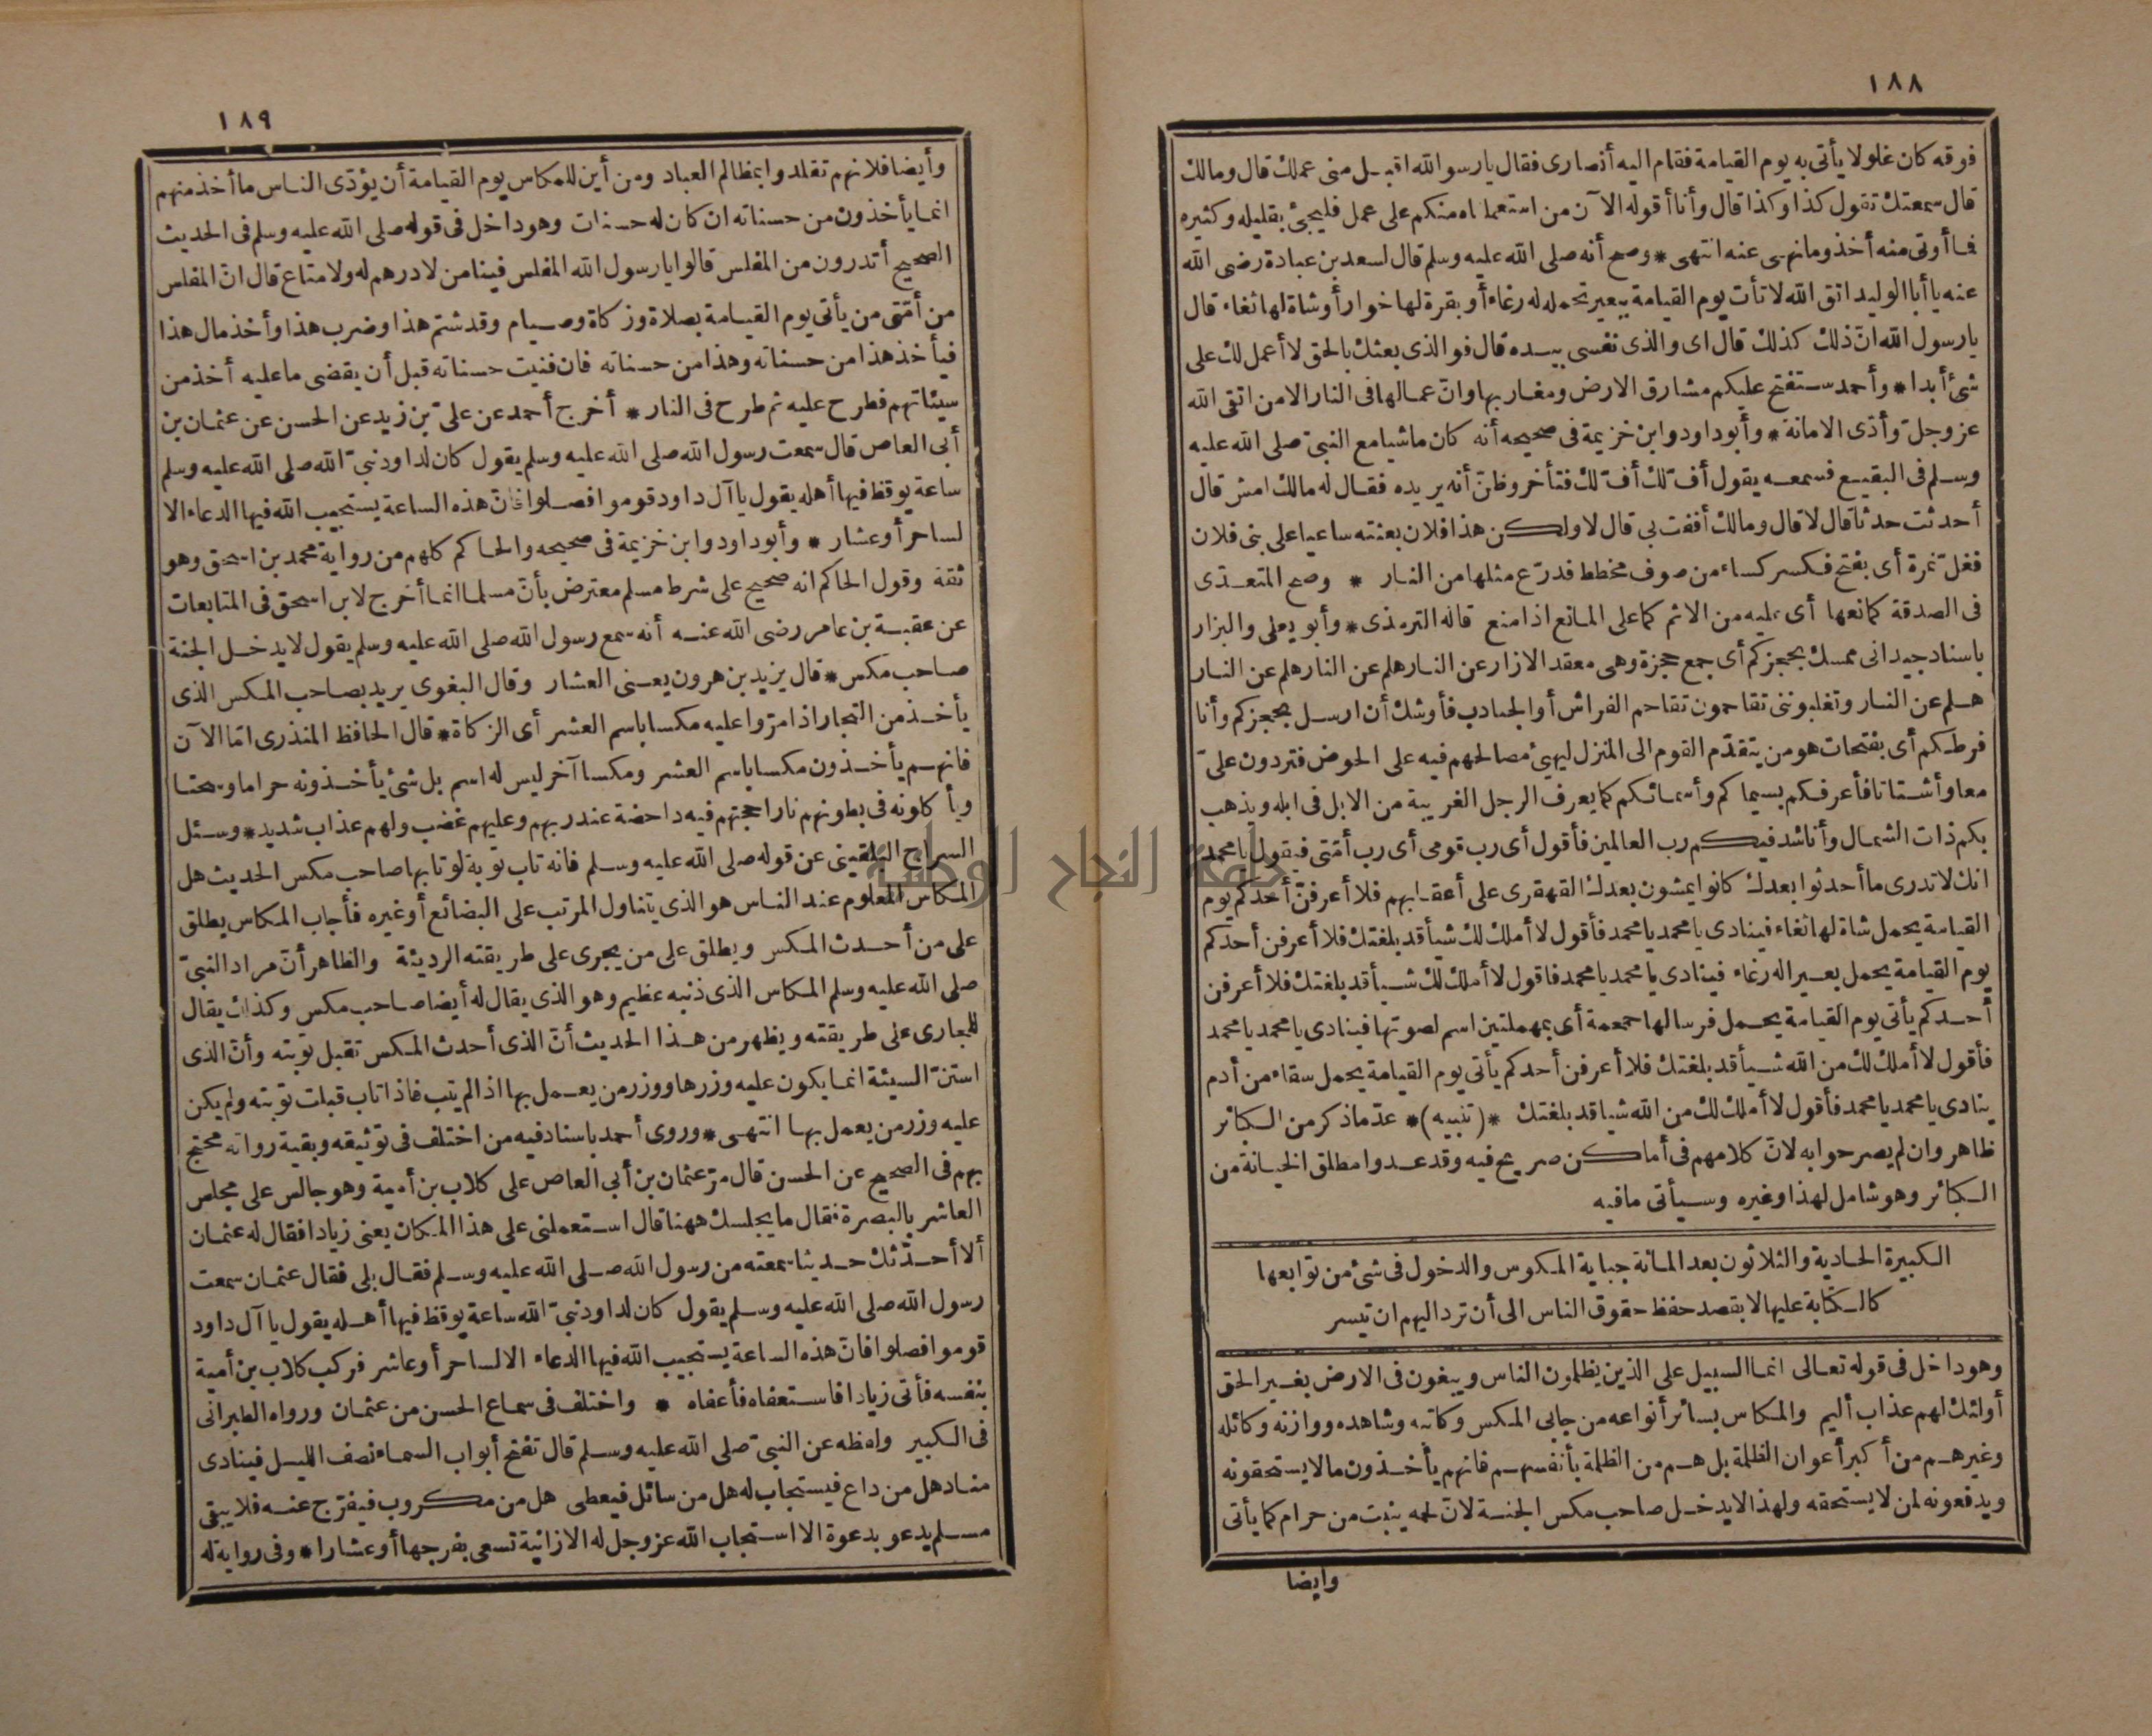 ١٨٨
فوقه كان غلولا يأتى به يوم القيامة فقام اليه أنصارى فقال يارسول الله اقبل منى عملك قال ومالك
قال سمعتك تقول كذا وكذا قال وأنا أقوله الآن من استعملناه منكم على عمل فليجئ بقليله وكثيره
فما أوتى منه أخذ ومانهى عنه انتهى * وصح أنه صلى الله عليه وسلم قال لسعد بن عبادة رضى الله
عنه يا أبا الوليد اتق الله لا تأت يوم القيامة ببعير تحمله له رغاء أو بقرة لها خوار أو شاة لها ثغاء قال
يارسول الله انّ ذلك كذلك قال اى والذى نفسى بيده قال فوالذى بعثك بالحق لا أعمل لك على
شئ أبدا * وأحمد ستفتح عليكم مشارق الارض ومغاربها وانّ عمالها فى النار الا من اتقى الله
عز وجلّ وأدّى الامانة * وأبوداود وابن خزيمة فى صحيحه أنه كان ماشيا مع النبىّ صلى الله عليه
وسلم فى البقيع فسمعه يقول أفّ لك أفّ لك فتأخر وظنّ أنه يريده فقال له مالك امش قال
أحدثت حدثا قال لا قال ومالك أففت بى قال لا ولكن هذا فلان بعثته ساعيا على بنى فلان
فغلّ نمرة أى بفتح فكسر كساء من صوف مخطط فدرّع مثلها من النار * وصح المتعدّى
فى الصدقة كمانعها أى عليه من الاثم كما على المانع اذا منع قاله الترمذى * وأبو يعلى والبزار
باسناد جيد انى ممسك بحجزكم أى جمع حجزة وهى معقد الازار عن النار هلم عن النار هلم عن النار
هلم عن النار وتغلبوننى تقاحمون تقاحم الفراش أو الجنادب فأوشك أن ارسل بحجزكم وأنا
فرطكم أى بفتحات هو من يتقدّم القوم الى المنزل ليهئ مصالحهم فيه على الحوض فتردون علىّ
معا وأشتاتا فأعرفكم بسيماكم وأسمائكم كما يعرف الرجل الغريبة من الابل فى ابله ويذهب
بكم ذات الشمال وأناشد فيكم رب العالمين فأقول أى رب قومى أى رب أمّتى فيقول يا محمد
انك لا تدرى ما أحدثوا بعدك كانوا يمشون بعدك القهقرى على أعقابهم فلا أعرفنّ أحدكم يوم
القيامة يحمل شاة لها ثغاء فينادى يا محمد يا محمد فأقول لا أملك لك شيأ قد بلغتك فلا أعرفن أحدكم
يوم القيامة يحمل بعيرا له رغاء فينادى يا محمد يا محمد فاقول لا أملك لك شيأ قد بلغتك فلا أعرفن
أحدكم يأتى يوم القيامة يحمل فرسا لها حمحمة أى بمهملتين اسم لصوتها فينادى يا محمد يا محمد
فأقول لا أملك لك من الله شيأ قد بلغتك فلا أعرفن أحدكم يأتى يوم القيامة يحمل سقاء من أدم
ينادى يا محمد يا محمد فأقول لا أملك لك من الله شيا قد بلغتك *(تنبيه)* عدّ ما ذكر من الكبائر
ظاهر وان لم يصرحوا به لانّ كلامهم فى أماكن صريح فيه وقد عدوا مطلق الخيانة من
الكبائر وهو شامل لهذا وغيره وسيأتى ما فيه
الكبيرة الحادية والثلاثون بعد المائة جباية المكوس والدخول فى شئ من توابعها
كالكتابة عليها لا بقصد حفظ حقوق الناس الى أن ترد اليهم ان تيسر
وهو داخل فى قوله تعالى انما السبيل على الذين يظلمون الناس ويبغون فى الارض بغير الحق
أولئك لهم عذاب أليم والمكاس بسائر أنواعه من جابى المكس وكاتبه وشاهده ووازنه وكائله
وغيرهم من أكبر أعوان الظلمة بل هم من الظلمة بأنفسهم فانهم يأخذون ما لا يستحقونه
ويدفعونه لمن لا يستحقه ولهذا لا يدخل صاحب مكس الجنة لانّ لحمه ينبت من حرام كما يأتى
وأيضا
١٨٩
وأيضا فلانهم تقلدوا بمظالم العباد ومن أين للمكاس يوم القيامة أن يؤدّى الناس ما أخذ منهم
انما يأخذون من حسناته ان كان له حسنات وهو داخل فى قوله صلى الله عليه وسلم فى الحديث
الصحيح أتدرون من المفلس قالوا يارسول الله المفلس فينا من لا درهم له ولا متاع قال انّ المفلس
من أمّتى من يأتى يوم القيامة بصلاة وزكاة وصيام وقد شتم هذا وضرب هذا وأخذ مال هذا
فيأخذ هذا من حسناته وهذا من حسناته فان فنيت حسناته قبل أن يقضى ما عليه أخذ من
سيئاتهم فطرح عليه ثم طرح فى النار * أخرج أحمد عن علىّ بن زيد عن الحسن عن عثمان بن
أبى العاص قال سمعت رسول الله صلى الله عليه وسلم يقول كان لداود نبىّ الله صلى الله عليه وسلم
ساعة يوقظ فيها أهله يقول يا آل داود قوموا فصلوا فانّ هذه الساعة يستجيب الله فيها الدعاء الا
لساحر أو عشار * وأبوداود وابن خزيمة فى صحيحه والحاكم كلهم من رواية محمد بن اسحق وهو
ثقة وقول الحاكم انه صحيح على شرط مسلم معترض بأنّ مسلما انما أخرج لابن اسحق فى المتابعات
عن عقبة بن عامر رضى الله عنه أنه سمع رسول الله صلى الله عليه وسلم يقول لا يدخل الجنة
صاحب مكس * قال يزيد بن هرون يعنى العشار وقال البغوى يريد بصاحب المكس الذى
يأخذ من التجار اذا مرّوا عليه مكسا باسم العشر أى الزكاة * قال الحافظ المنذرى امّا الآن
فانهم يأخذون مكسا باسم العشر ومكسا آخر ليس له اسم بل شئ يأخذونه حراما وسحتا
ويأكلونه فى بطونهم نارا حجتهم فيه داحضة عند ربهم وعليهم غضب ولهم عذاب شديد * وسئل
السراج البلقينى عن قوله صلى الله عليه وسلم فانه تاب توبة لو تابها صاحب مكس الحديث هل
المكاس المعلوم عند الناس هو الذى يتناول المرتب على البضائع أو غيره فأجاب المكاس يطلق
على من أحدث المكس ويطلق على من يجرى على طريقته الرديئة والظاهر أنّ مراد النبىّ
صلى الله عليه وسلم المكاس الذى ذنبه عظيم وهو الذى يقال له أيضا صاحب مكس وكذلك يقال
للجارى على طريقته ويظهر من هذا الحديث أنّ الذى أحدث المكس تقبل توبته وأنّ الذى
استنّ السيئة انما يكون عليه وزرها ووزر من يعمل بها اذا لم يتب فاذا تاب قبلت توبته ولم يكن
عليه وزر من يعمل بها انتهى * وروى أحمد باسناد فيه من اختلف فى توثيقه وبقية رواته محتج
بهم فى الصحيح عن الحسن قال مرّ عثمان بن أبى العاص على كلاب بن أمية وهو جالس على مجلس
العاشر بالبصرة فقال ما يجلسك ههنا قال استعملنى على هذا المكان يعنى زيادا فقال له عثمان
ألا أحدّثك حديثا سمعته من رسول الله صلى الله عليه وسلم فقال بلى فقال عثمان سمعت
رسول الله صلى الله عليه وسلم يقول كان لداود نبىّ الله ساعة يوقظ فيها أهله يقول يا آل داود
قوموا فصلوا فانّ هذه الساعة يستجيب الله فيها الدعاء الا لساحر أو عاشر فركب كلاب بن أمية
بنفسه فأتى زيادا فاستعفاه فأعفاه * واختلف فى سماع الحسن من عثمان ورواه الطبرانى
فى الكبير ولفظه عن النبىّ صلى الله عليه وسلم قال تفتح أبواب السماء نصف الليل فينادى
مناد هل من داع فيستجاب له هل من سائل فيعطى هل من مكروب فيفرّج عنه فلا يبقى
مسلم يدعو بدعوة الا استجاب الله عز وجل له الا زانية تسعى بفرجها أو عشارا * وفى رواية له
جامعة النجاح الوطنية